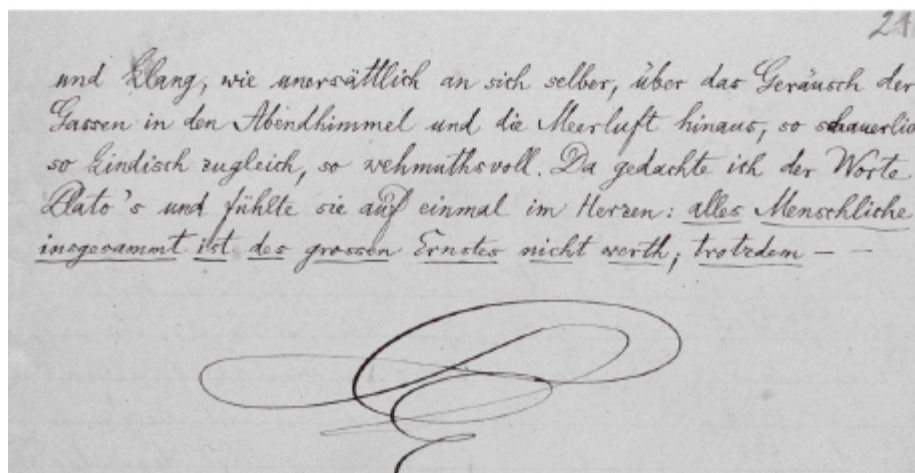 21
und Klang, wie unersättlich an sich selber, über das Geräusch der
Gassen in den Abendhimmel und die Meerluft hinaus, so schauerlic
so kindisch zugleich, so wehmuthsvoll. Da gedachte ich der Worte
Plato's und fühlte sie auf einmal im Herzen: alles Menschliche
insgesammt ist des grossen Ernstes nicht werth; trotzdem — —